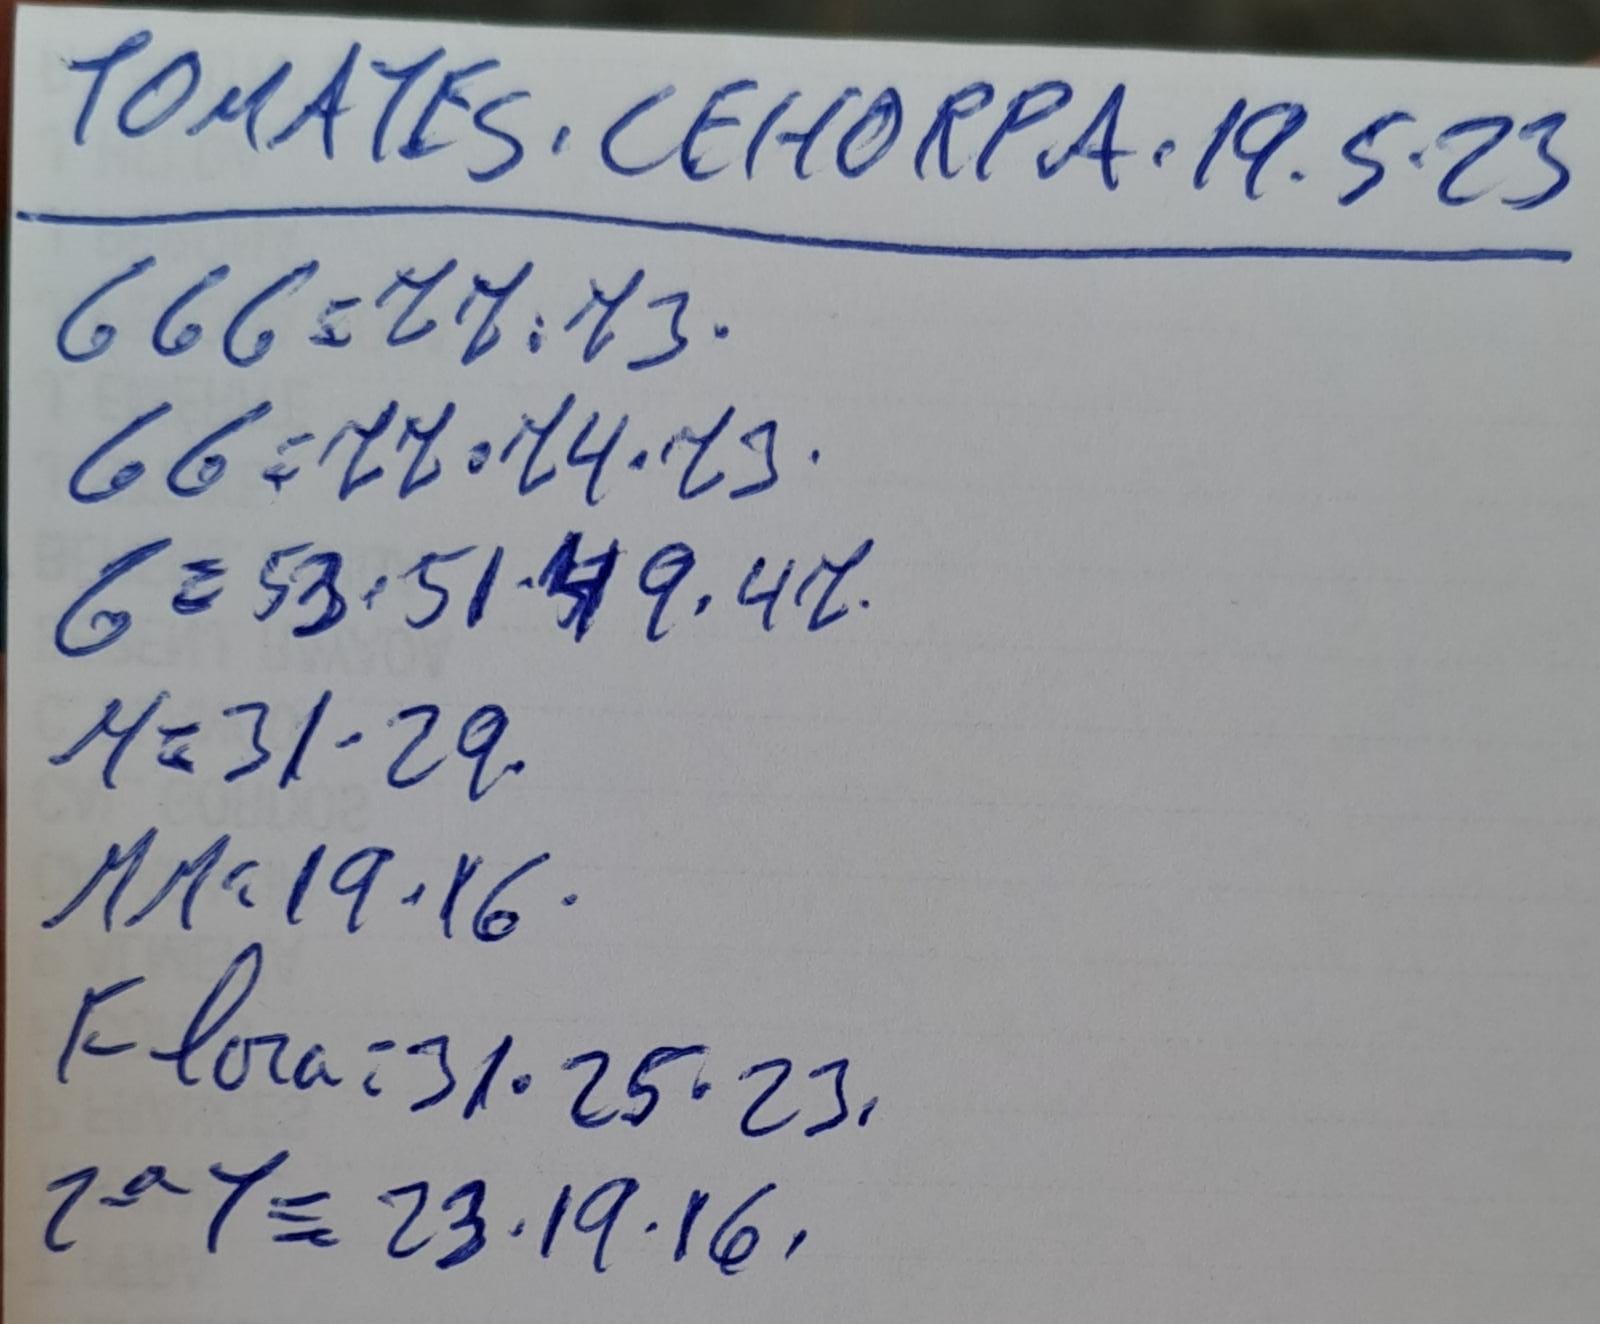 TOMATES. CEHORPA. 19. 5. 23
GGG = 77. 73.
GG = 77. 74. 73.
G = 53. 51. 49. 47.
M = 31 - 29.
MM = 19. 16.
Flora = 31. 25. 23.
2ª T = 23. 19. 16.